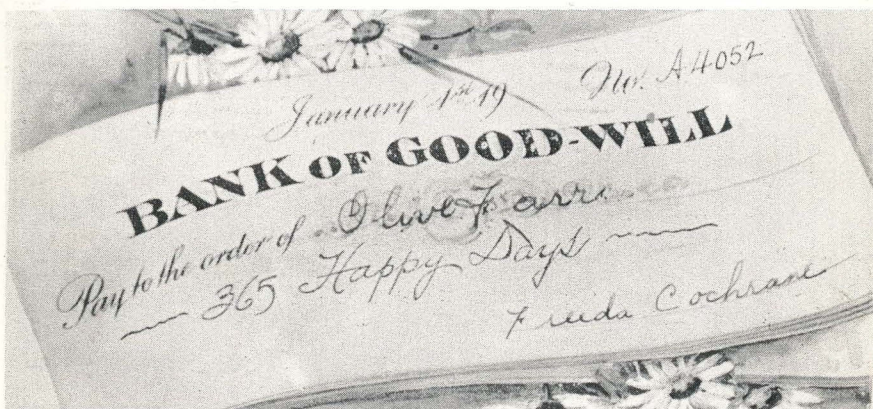 January 1st 19 No. A4052
BANK OF GOOD-WILL
Pay to the order of Olive Farr
~~ 365 Happy Days ~~
Freida Cochrane